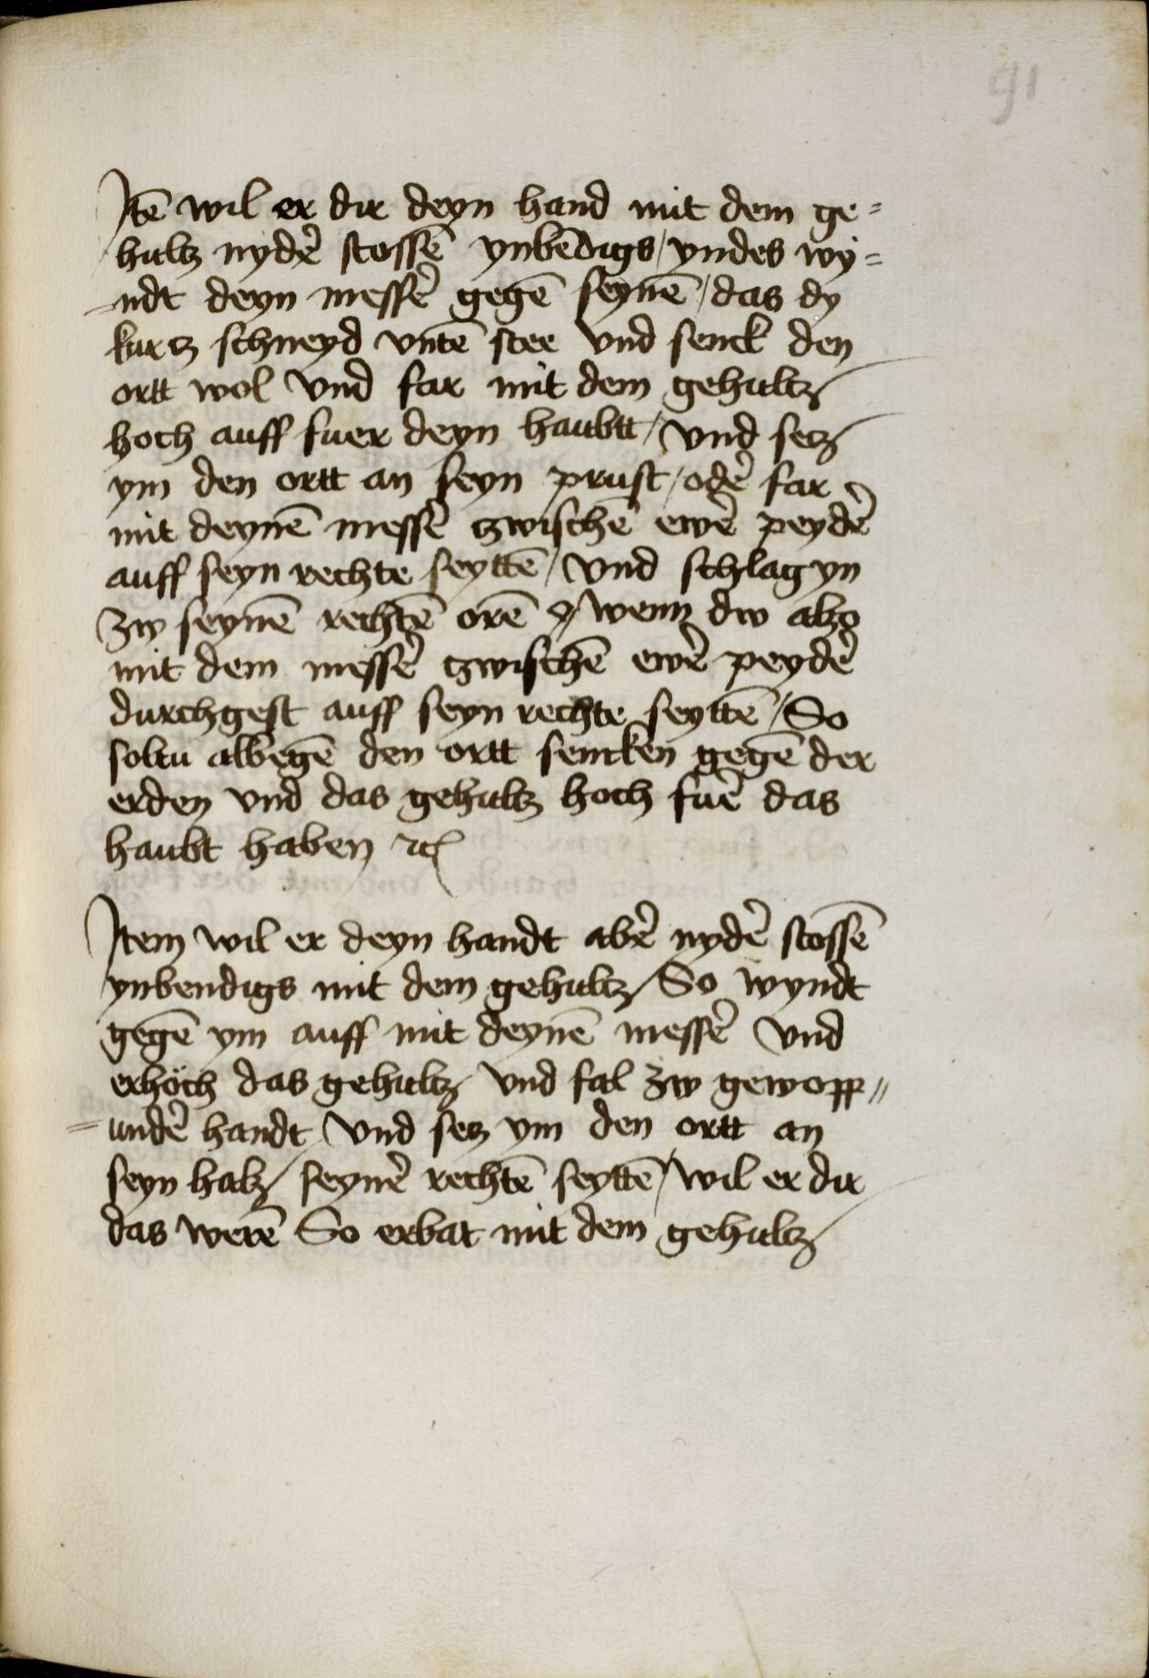 91
Itē wil er dir deyn hand mit dem ge=
hultz nydē stossē ynbēdigs / yndes wy=
-ndt deyn messē gegē seynē / das dy
kurcz schneyd vntē stee vnd senck den
ortt wol vnd far mit dem gehultz
hoch auff fuer deyn haubtt / vnd secz
ym den ortt an seyn prust / odē far
mit deynē messē czwischē ewē peydē
auff seyn rechte seyttē / vnd schlag yn
zw seynē rechtē orē / wenn dw alzo
mit dem messē czwischē ewē peydē
durchgest auff seyn rechte seyttē / So
soltu albegē den ortt sencken gegē der
erden vnd das gehultz hoch fuē das
haubt haben rc

Item wil er deyn handt abē nydē stossē
ynbendigs mit dem gehultz / So wyndt
gegē ym auff mit deynē messē vnd
erhöch das gehultz vnd fal zw gewopp=
=undē handt vnd secz ym den ortt an
seyn halz / seynē rechtē seyttē / wil er dir
das werē So erbat mit dem gehultz